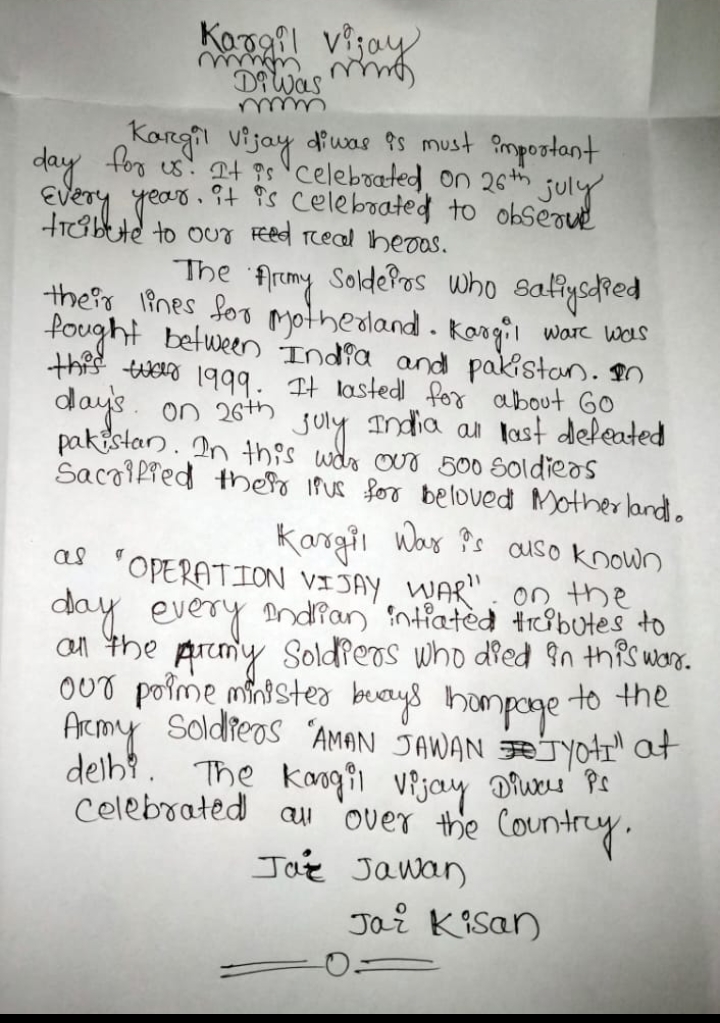 Kargil Vijay
Diwas
Kargil Vijay diwas is must important
day for us. It is celebrated on 26th july
Every year. it is celebrated to observe
tribute to our real heros.
The Army Soldeirs who satiysdied
their lines for Motherland. Kargil war was
fought between India and pakistan. In
this war 1999. It lasted for about 60
day's. on 26th july India all last defeated
pakistan. In this war our 500 soldiers
Sacrified their livs for beloved Motherland.
Kargil War is also known
as "OPERATION VIJAY WAR". on the
day every Indian intiated tributes to
all the Army Soldiers who died in this war.
our prime minister buays hompage to the
Army Soldiers "AMAN JAWAN JYOTI" at
delhi. The Kargil Vijay Diwas is
celebrated all over the Country.
Jai Jawan
Jai Kisan